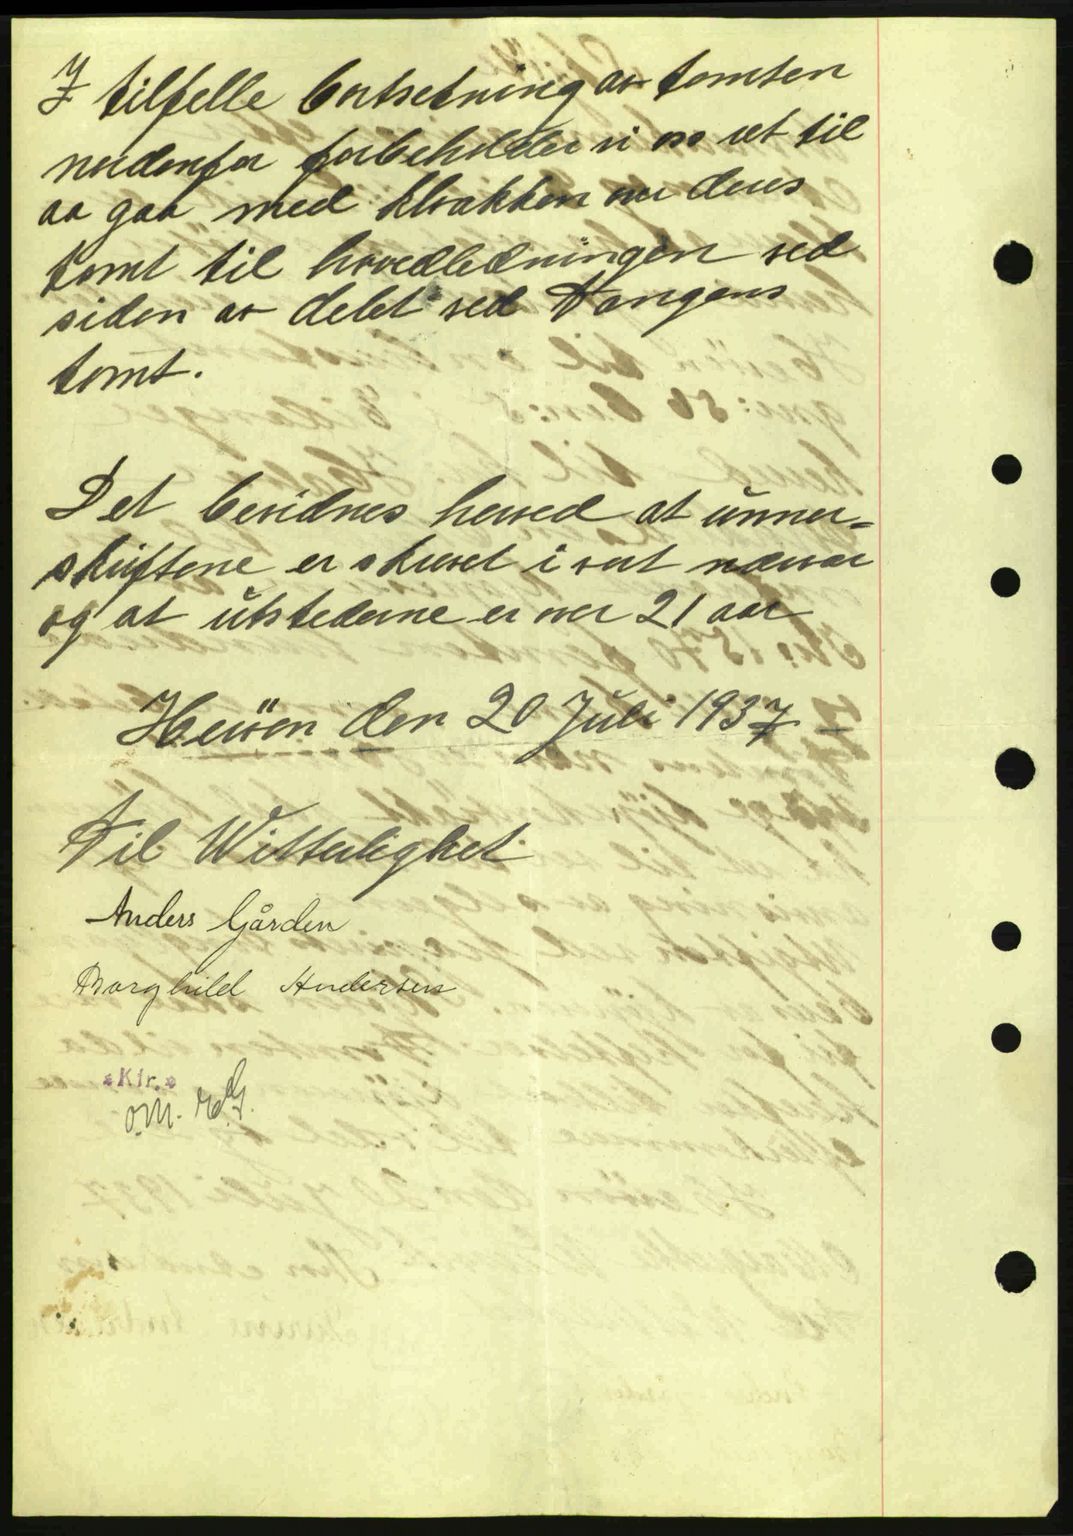 I tilfelle bortsetning av tomten
nordenfor forbeholder vi oss ret til
aa gaa med kloakken over deres
tomt til hovedledningen ved
siden av delet ved Vangens
tomt.
Det bevidnes herved at unner=
skriftene er skrevet i vort nærvær
og at utstederne er over 21 aar
Herøen den 20 Juli 1937
Til Witterlighet
Anders Gården
Borghild Andersen
*Kfr.*
O.M. E.G.